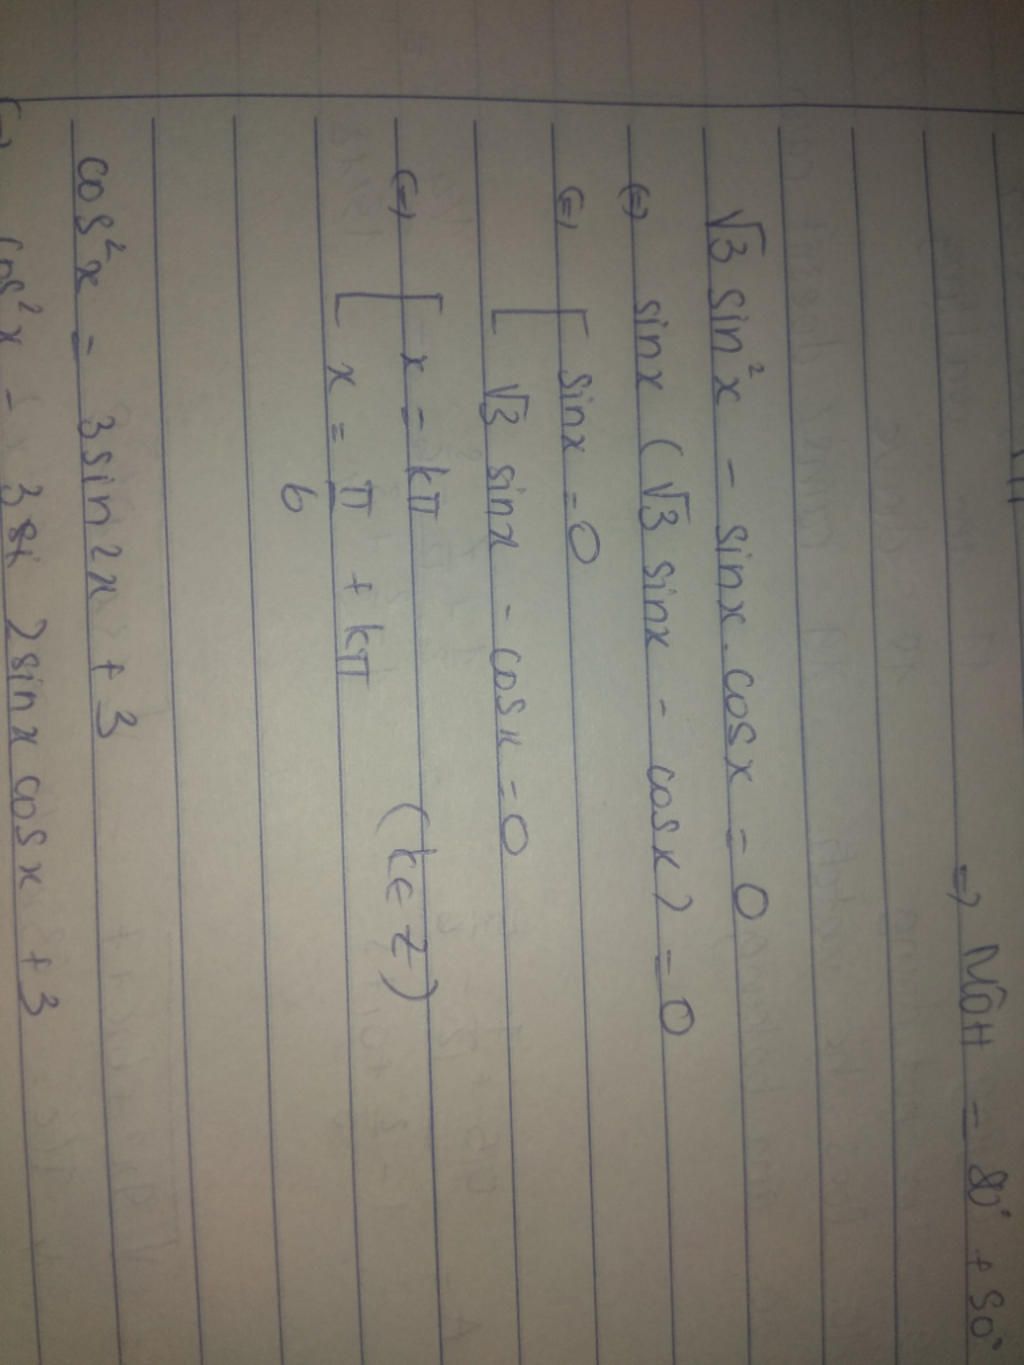 =) MÔH = 80° + 50°
√3 sin²x - sinx.cosx = 0
(=) sinx (√3 sinx - cosx) = 0
(=) [ sinx = 0
[ √3 sinx - cosx = 0
(=) [ x = kπ
[ x = π/6 + kπ (k∈Z)
cos²x = 3sin2x + 3
(=) cos²x = 2sinx cosx + 3